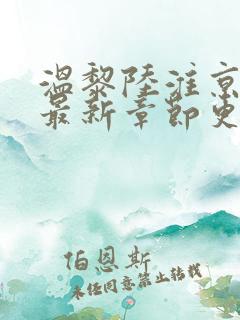 温黎陆淮京
最新章节免
伯恩斯
未经同意禁止转载